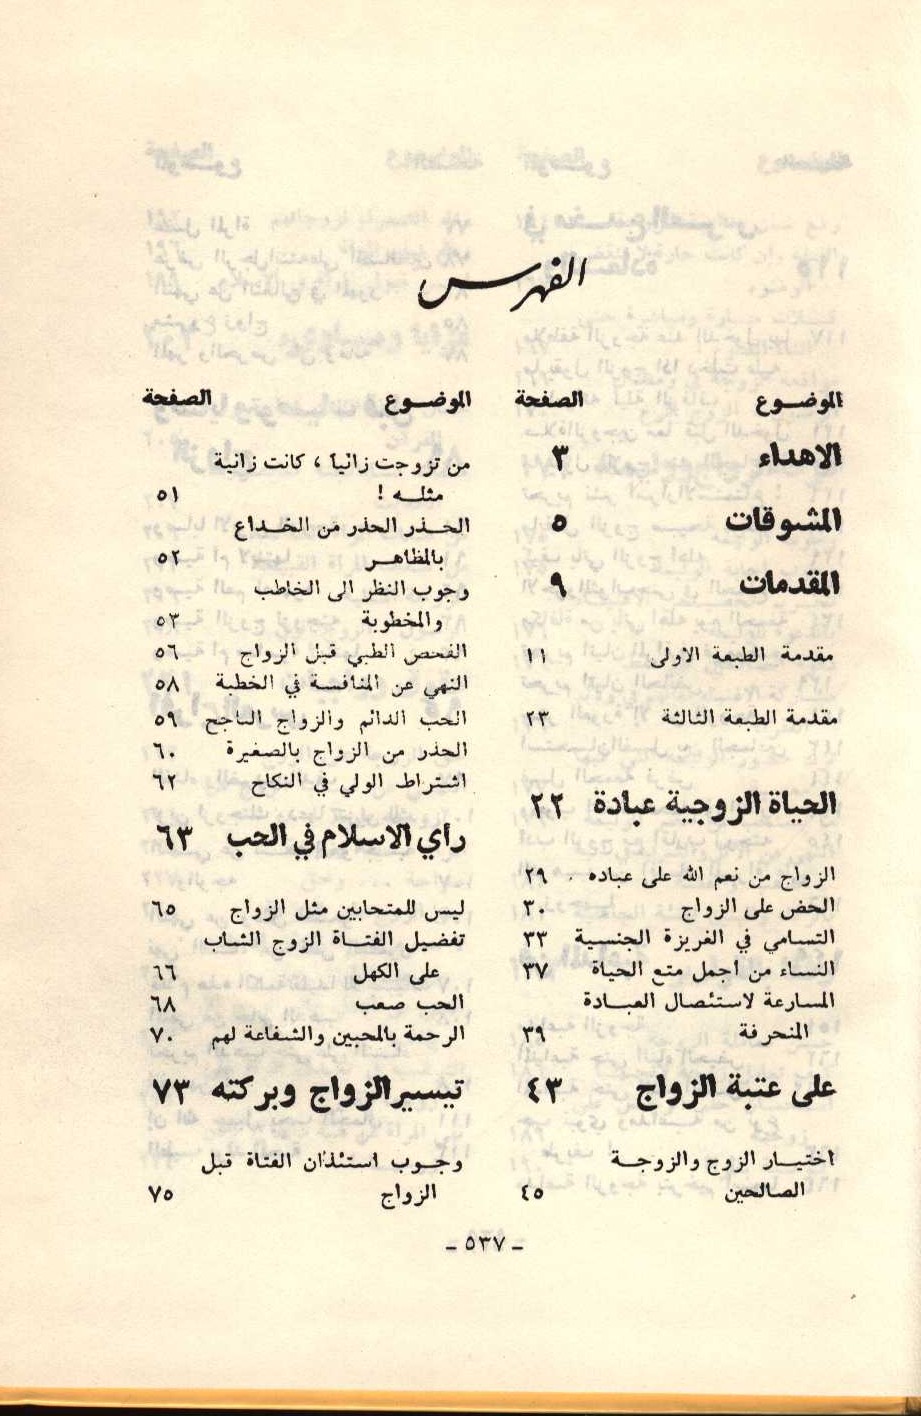 الفهرس
الموضوع الصفحة
الاهداء ٣
المشوقات ٥
المقدمات ٩
مقدمة الطبعة الاولى ١١
مقدمة الطبعة الثالثة ٢٣
الحياة الزوجية عبادة ٢٢
الزواج من نعم الله على عباده ٢٩
الحض على الزواج ٣٠
التسامي في الغريزة الجنسية ٣٣
النساء من أجمل متع الحياة ٣٧
المسارعة لاستئصال العبادة
المنحرفة ٣٩
على عتبة الزواج ٤٣
اختيار الزوج والزوجة
الصالحين ٤٥
الموضوع الصفحة
من تزوجت زانياً ، كانت زانية
مثله ! ٥١
الحذر الحذر من الخداع
بالمظاهر ٥٢
وجوب النظر الى الخاطب
والمخطوبة ٥٣
الفحص الطبي قبل الزواج ٥٦
النهي عن المنافسة في الخطبة ٥٨
الحب الدائم والزواج الناجح ٥٩
الحذر من الزواج بالصغيرة ٦٠
اشتراط الولي في النكاح ٦٢
رأي الاسلام في الحب ٦٣
ليس للمتحابين مثل الزواج ٦٥
تفضيل الفتاة الزوج الشاب
على الكهل ٦٦
الحب صعب ٦٨
الرحمة بالمحبين والشفاعة لهم ٧٠
تيسير الزواج وبركته ٧٣
وجوب استئذان الفتاة قبل
الزواج ٧٥
- ٥٣٧ -